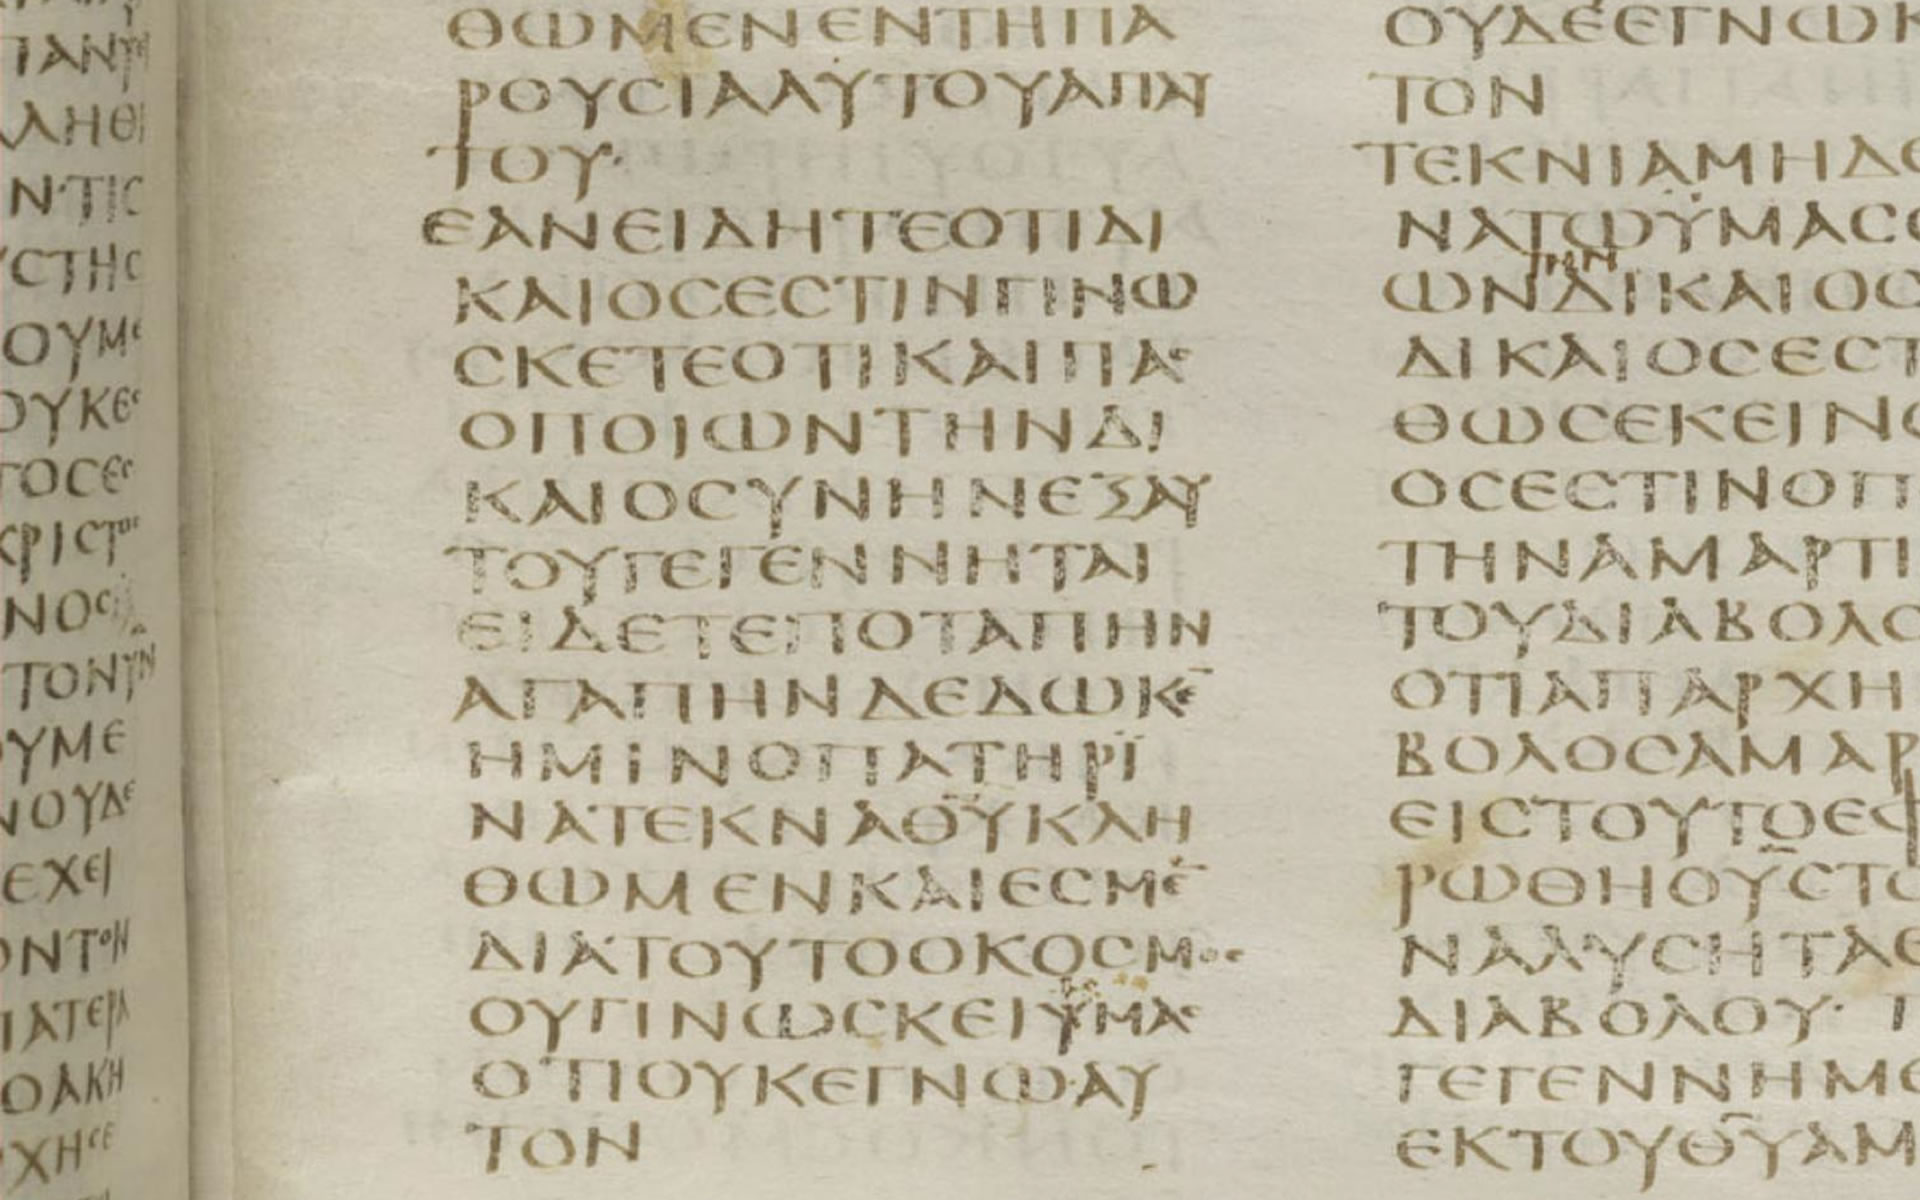 ΠΑΝ
ΛΗΘ
Ν·ΤΙϹ
ΥϹΤΗϹ
ΟΥΜΕ
ΟΥΚΕϹ
ΤΟϹΕϹ
ΧΡΙϹΤΟϹ
ΝΟϹ
ΤΟΝΥΝ
ΟΥΜΕ
ΝΟΥΔΕ
ΕΧΕΙ
ΟΝΤΟΝ
ΠΑΤΕΡΑ
ΟΑΚΗ
ΧΗϹΕ
ΘΩΜΕΝΕΝΤΗΠΑ
ΡΟΥϹΙΑΑΥΤΟΥΑΠΑΥ
ΤΟΥ·
ΕΑΝΕΙΔΗΤΕΟΤΙΔΙ
ΚΑΙΟϹΕϹΤΙΝΓΙΝΩ
ϹΚΕΤΕΟΤΙΚΑΙΠΑϹ
ΟΠΟΙΩΝΤΗΝΔΙ
ΚΑΙΟϹΥΝΗΝΕΞΑΥ
ΤΟΥΓΕΓΕΝΝΗΤΑΙ
ΕΙΔΕΤΕΠΟΤΑΠΗΝ
ΑΓΑΠΗΝΔΕΔΩΚΕ̅
ΗΜΙΝΟΠΑΤΗΡΪ
ΝΑΤΕΚΝΑΘ̅Υ̅ΚΛΗ
ΘΩΜΕΝΚΑΙΕϹΜΕ̅
ΔΙΑΤΟΥΤΟΟΚΟϹΜΟϹ
ΟΥΓΙΝΩϹΚΕΙΥΜΑϹ
ΟΤΙΟΥΚΕΓΝΩΑΥ
ΤΟΝ
ΟΥΔΕΕΓΝΩΚ
ΤΟΝ
ΤΕΚΝΙΑΜΗΔΕ
ΝΑΤΩΫΜΑϹ
ΤΗΝ
ΩΝΔΙΚΑΙΟϹ
ΔΙΚΑΙΟϹΕϹΤ
ΘΩϹΕΚΕΙΝΟ
ΟϹΕϹΤΙΝΟΠ
ΤΗΝΑΜΑΡΤΙ
ΤΟΥΔΙΑΒΟΛΟ
ΟΤΙΑΠΑΡΧΗ
ΒΟΛΟϹΑΜΑΡ
ΕΙϹΤΟΥΤΟΕΦ
ΡΩΘΗΟΥ̅ϹΤΟ
ΝΑΛΥϹΗΤΑΕ
ΔΙΑΒΟΛΟΥ· Π
ΓΕΓΕΝΝΗΜΕ
ΕΚΤΟΥΘ̅Υ̅ΑΜ